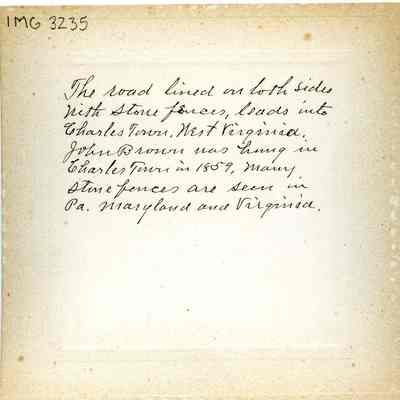 IMG 3235
The road lined on both sides
with stone fences, leads into
Charles Town, West Virginia.
John Brown was hung in
Charles Town in 1859, Many
stone fences are seen in
Pa. Maryland and Virginia.